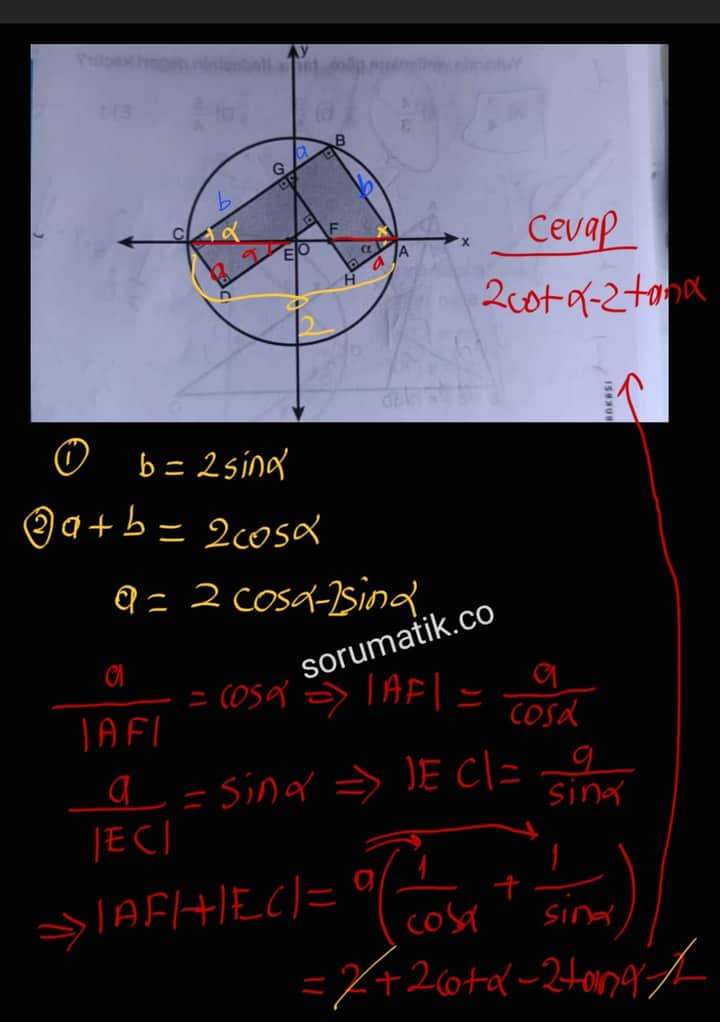 y
B
a
G
b
b
C
α
x
E
O
F
α
A
x
a
a
D
H
a
2
cevap
2cotα-2tanα
① b = 2sinα
② a + b = 2cosα
a = 2cosα-2sinα
sorumatik.co
a/|AF| = cosα ⇒ |AF| = a/cosα
a/|EC| = sinα ⇒ |EC| = a/sinα
⇒ |AF|+|EC| = a(1/cosα + 1/sinα)
= 2+2cotα-2tanα-2